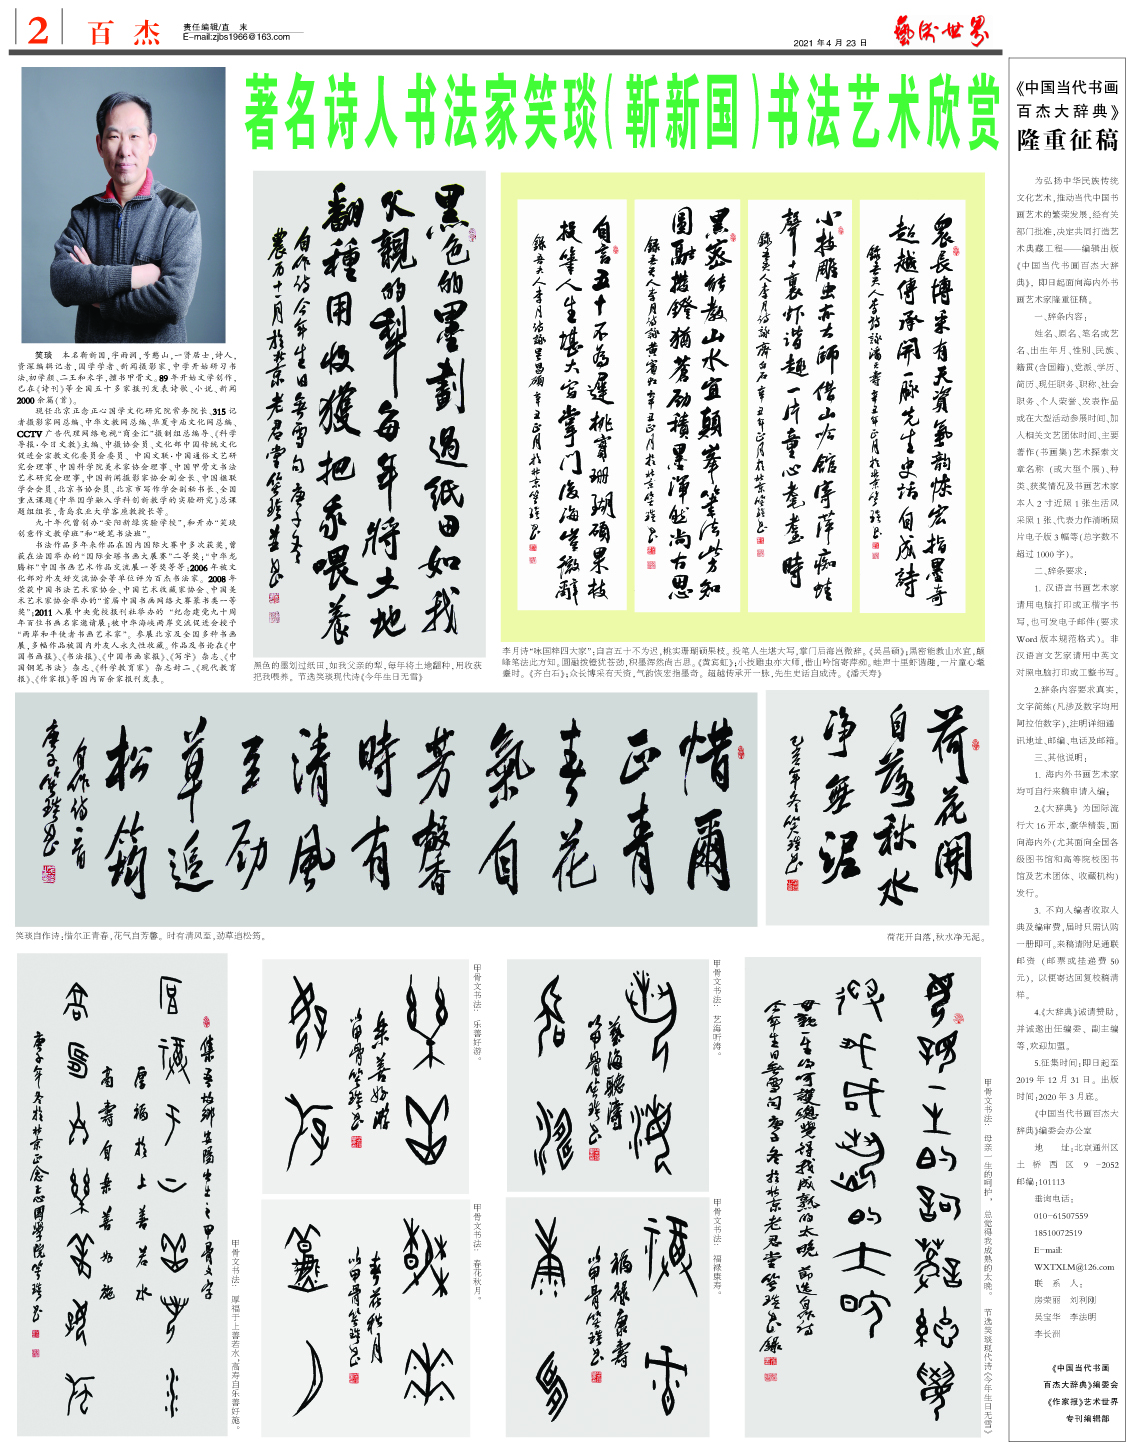 2 百杰
责任编辑/直 末
E-mail:zjbs1966@163.com
2021 年4 月 23 日
藝术世界
著名诗人书法家笑琰(靳新国)书法艺术欣赏
笑琰 本名靳新国,字雨润,号憨山,一贤居士,诗人,
资深编辑记者,国学学者、新闻摄影家,中学开始研习书
法,初学颜、二王和米芾,擅书甲骨文。89年开始文学创作,
已在《诗刊》等全国五十多家报刊发表诗歌、小说、新闻
2000余篇(首)。
现任北京正念正心国学文化研究院常务院长、315记
者摄影家网总编、中华文教网总编、华夏寺庙文化网总编、
CCTV广告代理网络电视“商企汇”摄制组总编导、《科学
导报·今日文教》主编、中摄协会员、文化部中国传统文化
促进会宗教文化委员会委员、中国文联·中国通俗文艺研
究会理事、中国科学院美术家协会理事、中国甲骨文书法
艺术研究会理事、中国新闻摄影家协会副会长、中国楹联
学会会员、北京书协会员、北京市写作学会副秘书长、全国
重点课题《中华国学融入学科创新教学的实验研究》总课
题组组长、青岛农业大学客座教授长等。
九十年代曾创办“安阳新绿实验学校”,和开办“笑琰
创意作文教学班”和“硬笔书法班”。
书法作品多年来作品在国内国际大赛中多次获奖,曾
获在法国举办的“国际金塔书画大展赛”二等奖;“中华龙
腾杯”中国书画艺术作品交流展一等奖等等;2006年被文
化部对外友好交流协会等单位评为百杰书法家。2008年
荣获中国书法艺术家协会、中国艺术收藏家协会、中国美
术艺术家协会举办的“首届中国书画网络大赛篆书类一等
奖”;2011入展中央党校报刊社举办的 “纪念建党九十周
年百位书画名家邀请展;被中华海峡两岸交流促进会授予
“两岸和平使者书画艺术家”。参展北京及全国多种书画
展,多幅作品被国内外友人永久性收藏。作品及书论在《中
国书画报》、《书法报》、《中国书画家报》、《写字》杂志、《中
国钢笔书法》杂志、《科学教育家》杂志封二、《现代教育
报》、《作家报》等国内百余家报刊发表。
黑色的墨划过纸田如我
父親的犁每年將土地
翻種用收獲把我喂養
黑色的墨划过纸田,如我父亲的犁,每年将土地翻种,用收获
把我喂养。节选笑琰现代诗《今年生日无雪》
眾長博采有天資氣韵恢宏指墨奇
超越傳承開一脈先生史話自成詩
小技雕虫亦大師借山吟館寄萍痴蛙
聲十裏虾谐趣一片童心耄耋時
黑密能教山水宜顛峯筆法此方知
圓融拨鐙犹蒼劲積墨渾然尚古思
自言五十不為遲桃實珊瑚碩果枝
投筆人生堪大写掌门後海豈微辭
李月诗“咏国粹四大家”;自言五十不为迟,桃实珊瑚硕果枝。投笔人生堪大写,掌门后海岂微辞。《吴昌硕》;黑密能教山水宜,颠
峰笔法此方知。圆融拨镫犹苍劲,积墨浑然尚古思。《黄宾虹》;小技雕虫亦大师,借山吟馆寄萍痴。蛙声十里虾谐趣,一片童心耄
耋时。《齐白石》;众长博采有天资,气韵恢宏指墨奇。超越传承开一脉,先生史话自成诗。《潘天寿》
惜爾
正青
春花
氣自
芳馨
時有
清風
至劲
草追
松筠
自作诗一首
庚子笑琰书
笑琰自作诗;惜尔正青春,花气自芳馨。时有清风至,劲草追松筠。
荷花開
自落秋水
净無泥
己亥年冬笑琰书
荷花开自落,秋水净无泥。
集吾故鄉安陽出土之甲骨文字
厚福於上善若水
高壽自樂善好施
庚子年冬於北京正念正心國學院笑琰书
甲骨文书法: 厚福于上善若水,高寿自乐善好施。
樂善好游
以甲骨笑琰书
甲骨文书法: 乐善好游。
春花秋月
以甲骨笑琰书
甲骨文书法: 春花秋月。
藝海聽濤
以甲骨笑琰书
甲骨文书法: 艺海听涛。
福禄康壽
以甲骨笑琰书
甲骨文书法: 福禄康寿。
甲骨文书法: 母亲一生的呵护, 总觉得我成熟的太晚。 节选笑琰现代诗《今年生日无雪》
《中国当代书画
百杰大辞典》
隆重征稿
为弘扬中华民族传统
文化艺术,推动当代中国书
画艺术的繁荣发展,经有关
部门批准,决定共同打造艺
术典藏工程——编辑出版
《中国当代书画百杰大辞
典》, 即日起面向海内外书
画艺术家隆重征稿。
一、辞条内容:
姓名、原名、笔名或艺
名、出生年月、性别、民族、
籍贯(含国籍)、党派、学历、
简历、现任职务、职称、社会
职务、个人荣誉、发表作品
或在大型活动参展时间、加
入相关文艺团体时间、主要
著作(书画集)艺术探索文
章名称 (或大型个展)、种
类、获奖情况及书画艺术家
本人 2 寸近照 1 张生活风
采照 1 张、代表力作清晰照
片电子版 3 幅等(总字数不
超过 1000 字)。
二、辞条要求:
1. 汉语言书画艺术家
请用电脑打印或正楷字书
写,也可发电子邮件(要求
Word 版本规范格式)。非
汉语言文艺家请用中英文
对照电脑打印或工整书写。
2.辞条内容要求真实,
文字简练(凡涉及数字均用
阿拉伯数字),注明详细通
讯地址、邮编、电话及邮箱。
三、其他说明:
1. 海内外书画艺术家
均可自行来稿申请入编;
2.《大辞典》 为国际流
行大16开本,豪华精装,面
向海内外(尤其面向全国各
级图书馆和高等院校图书
馆及艺术团体、收藏机构)
发行。
3. 不向入编者收取入
典及编审费,届时只需认购
一册即可。来稿请附足通联
邮资 (邮票或挂递费 50
元), 以便寄达回复校稿清
样。
4.《大辞典》诚请赞助,
并诚邀出任编委、副主编
等,欢迎加盟。
5.征集时间:即日起至
2019 年 12 月 31 日。出版
时间:2020 年 3 月底。
《中国当代书画百杰大
辞典》编委会办公室
地 址:北京通州区
土桥西区 9 -2052
邮编:101113
垂询电话:
010-61507559
18510072519
E-mail:
WXTXLM@126.com
联 系 人:
房荣丽 刘利刚
吴宝华 李法明
李长洲
《中国当代书画
百杰大辞典》编委会
《作家报》艺术世界
专刊编辑部